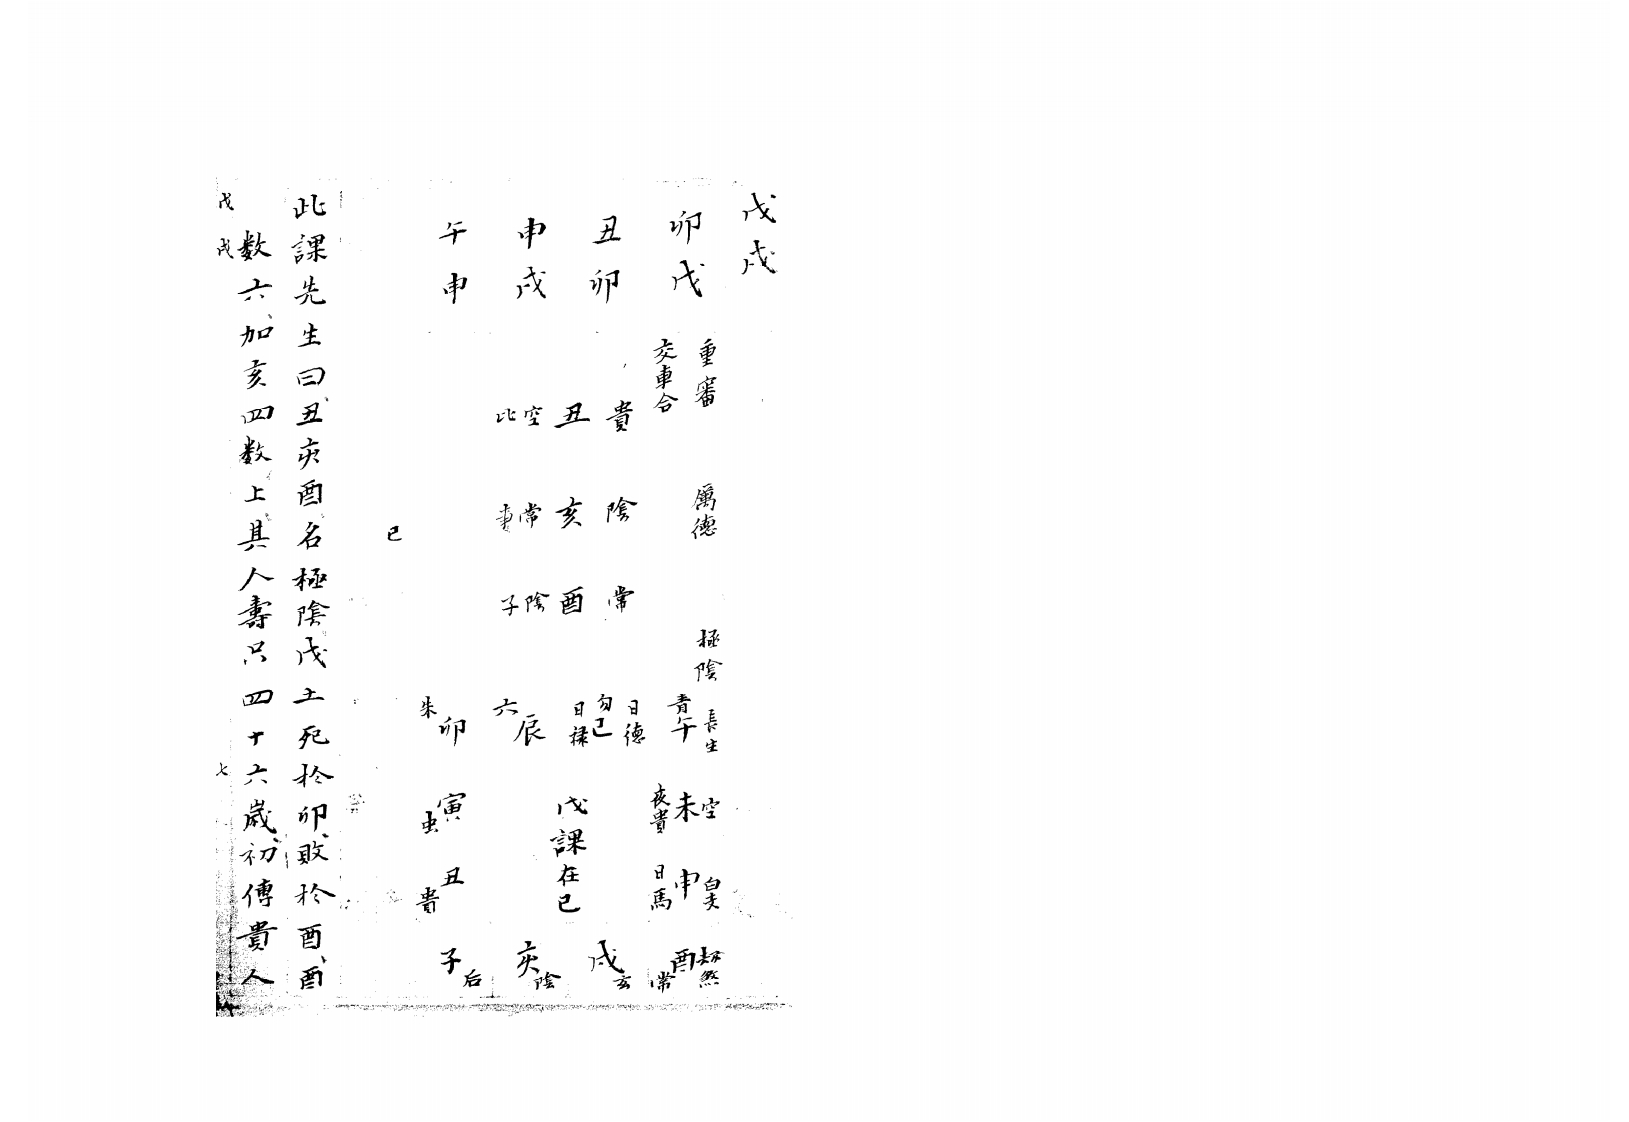 戊戌
卯戊
丑卯
申戌
午申
重審 厲德 極陰
交車合
貴 丑 空 比
陰 亥 常
常 酉 陰 子
巳
長生 青午
日德 勾巳 日祿
六辰
朱卯
空 未 夜貴
申 日馬
戊課在巳
寅
丑 貴
酉 常
戌 玄
亥 陰
子 后
此課先生曰丑亥酉名極陰戊土死於卯、敗於酉、酉
数六、加亥四数上其人壽只四十六歲、初傳貴人
戊戌 七